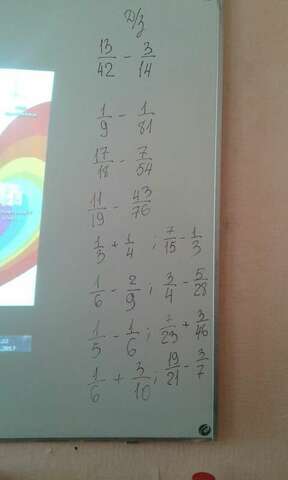 Д/з
13/42 - 3/14
1/9 - 1/81
17/18 - 7/54
11/19 - 43/76
1/3 + 1/4 ; 7/15 - 1/3
1/6 - 2/9 ; 3/4 - 5/28
1/5 - 1/6 ; /23 + 3/46
1/6 + 3/10 ; 19/21 - 3/7